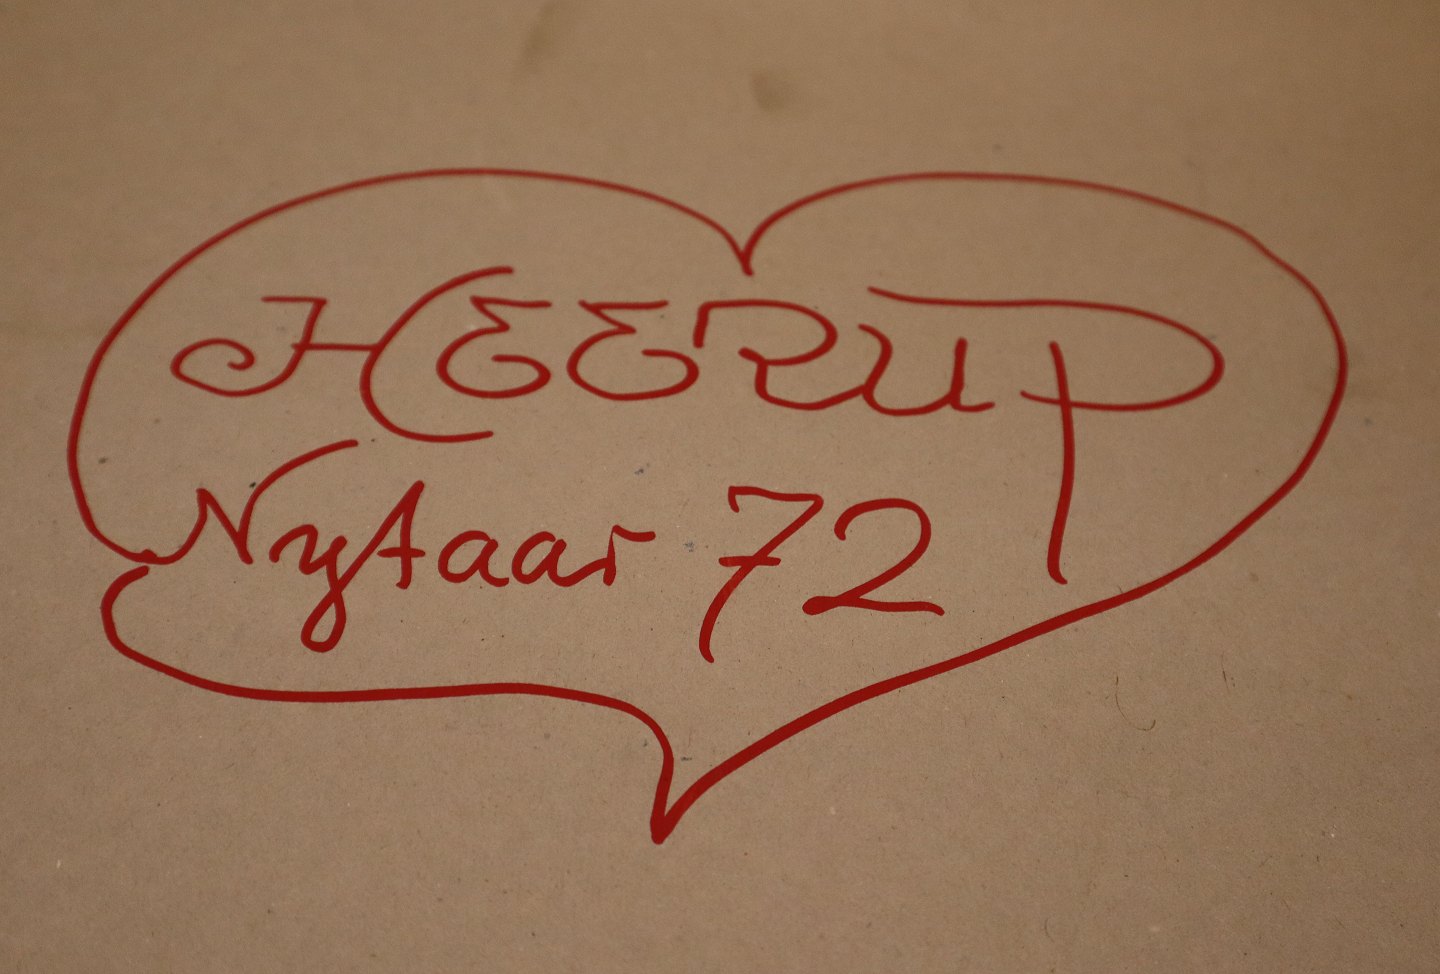 HEERUP
Nytaar 72